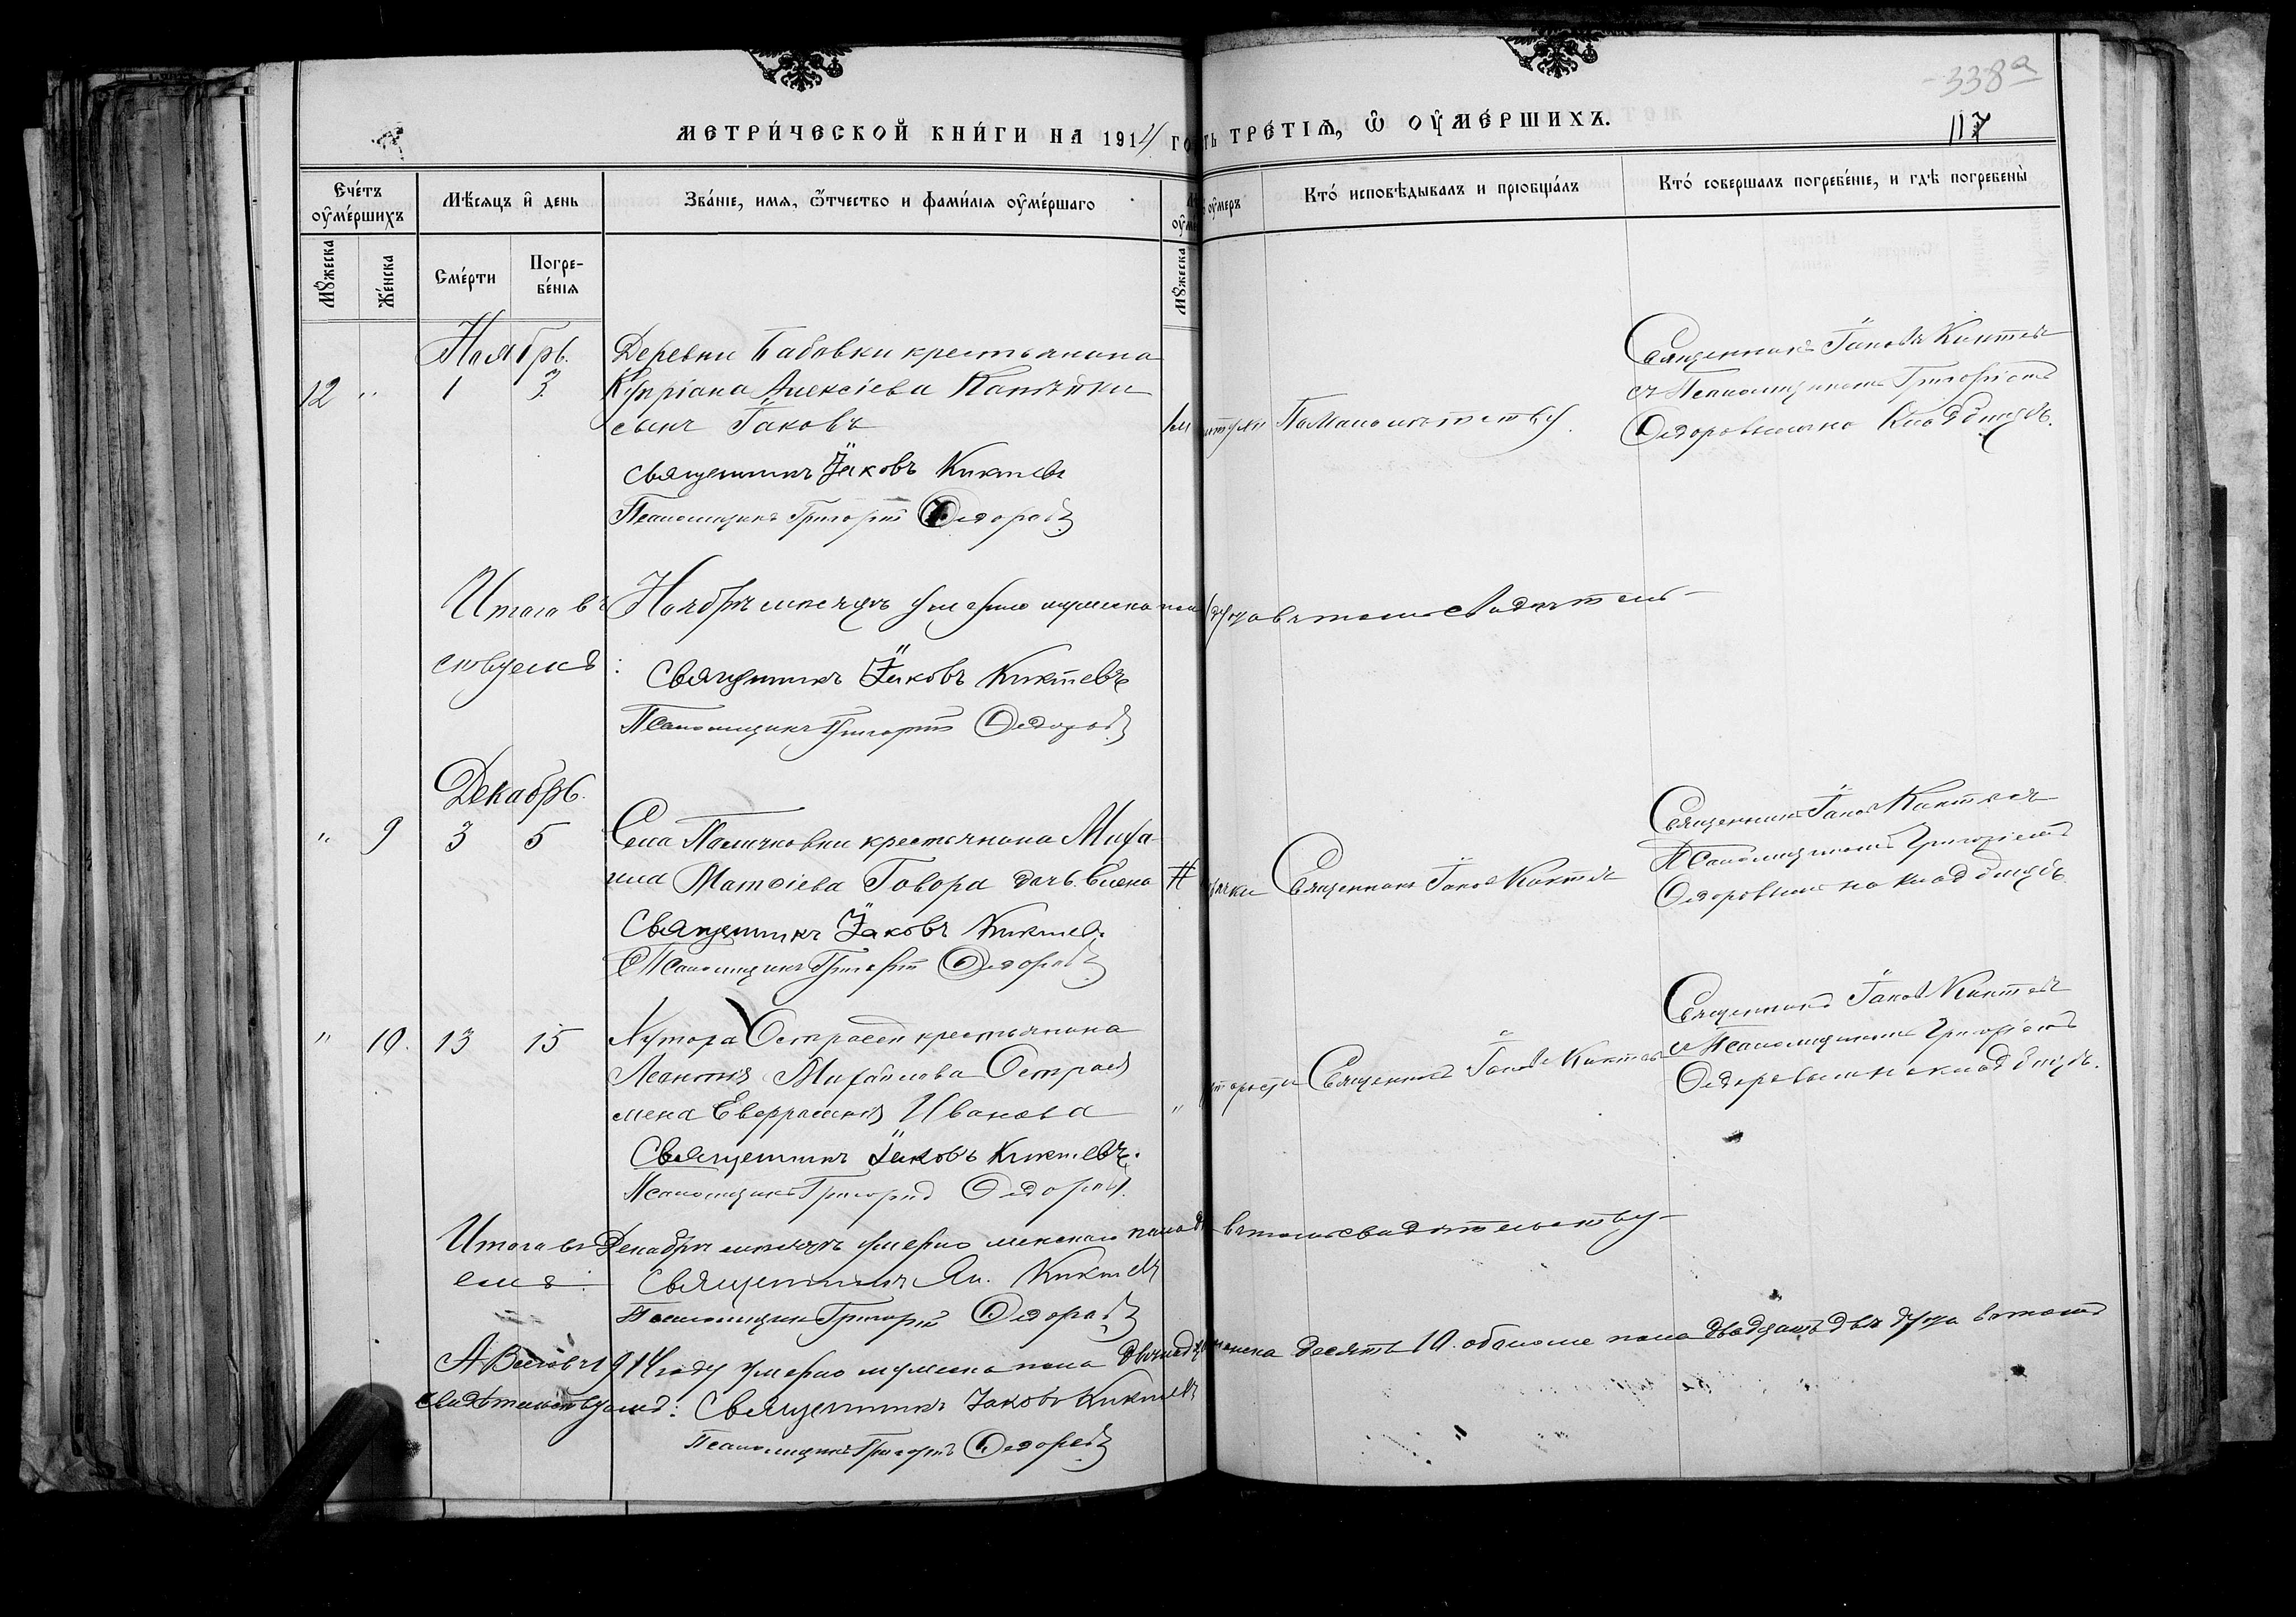 338а
МЕТРИ́ЧЕСКОЙ КНИ́ГИ НА 1914 ГО
ТЬ ТРЕ́ТІѦ, Ѡ ОУМЕ́РШИХЪ.
117
Сче́тъ оумершихъ
Мѣсяцъ и день
Зва́ніе, имя, ѿтчество и фами́лія оуме́ршаго
оумеръ
Кто́ исповѣдывалъ и пріобща́лъ
Кто́ совершалъ погребе́ніе, и гдѣ погребены̀
Мꙋжеска
Же́нска
Сме́рти
Погребе́нія
Мꙋжеска
Ноябрь.
12 " 1 3.
Деревни Бабовки крестьянина
Кипріана Алексіева
сынъ Іаковъ
Священникъ Іаковъ Киктевъ
Псаломщикъ Григорій Ѳедоровъ
По малолѣтству.
Священникъ Іаковъ Киктевъ
съ Псаломщикомъ Григоріемъ
Ѳедоровымъ на кладбищѣ.
Итого въ Ноябрѣ мѣсяцѣ умерло мужска пола въ томъ свидѣтель-
ствуемъ:
Священникъ Іаковъ Киктевъ
Псаломщикъ Григорій Ѳедоровъ
Декабрь.
" 9 3 5
Села крестьянина Миха-
ила Матѳіева Говора дочь Елена
Священникъ Іаковъ Киктевъ
Псаломщикъ Григорій Ѳедоровъ
Священникъ Іаковъ Киктевъ
Священникъ Іаковъ Киктевъ
съ Псаломщикомъ Григоріемъ
Ѳедоровымъ на кладбищѣ.
" 10. 13 15
Хутора крестьянина
Леонтія Михайлова
жена Евфросинія Иванова
Священникъ Іаковъ Киктевъ.
Псаломщикъ Григорій Ѳедоровъ.
"
старости
Священникъ Іаковъ Киктевъ
Священникъ Іаковъ Киктевъ
съ Псаломщикомъ Григоріемъ
Ѳедоровымъ на кладбищѣ.
Итого въ Декабрѣ мѣсяцѣ умерло женскаго пола въ томъ свидѣтельству-
емъ:
Священникъ Як. Киктевъ
Псаломщикъ Григорій Ѳедоровъ
А Всего въ 1914 году умерло мужска пола женска десять 10. обоего пола двадцать два душъ въ томъ
свидѣтельствуемъ: Священникъ Іаковъ Киктевъ
Псаломщикъ Григорій Ѳедоровъ